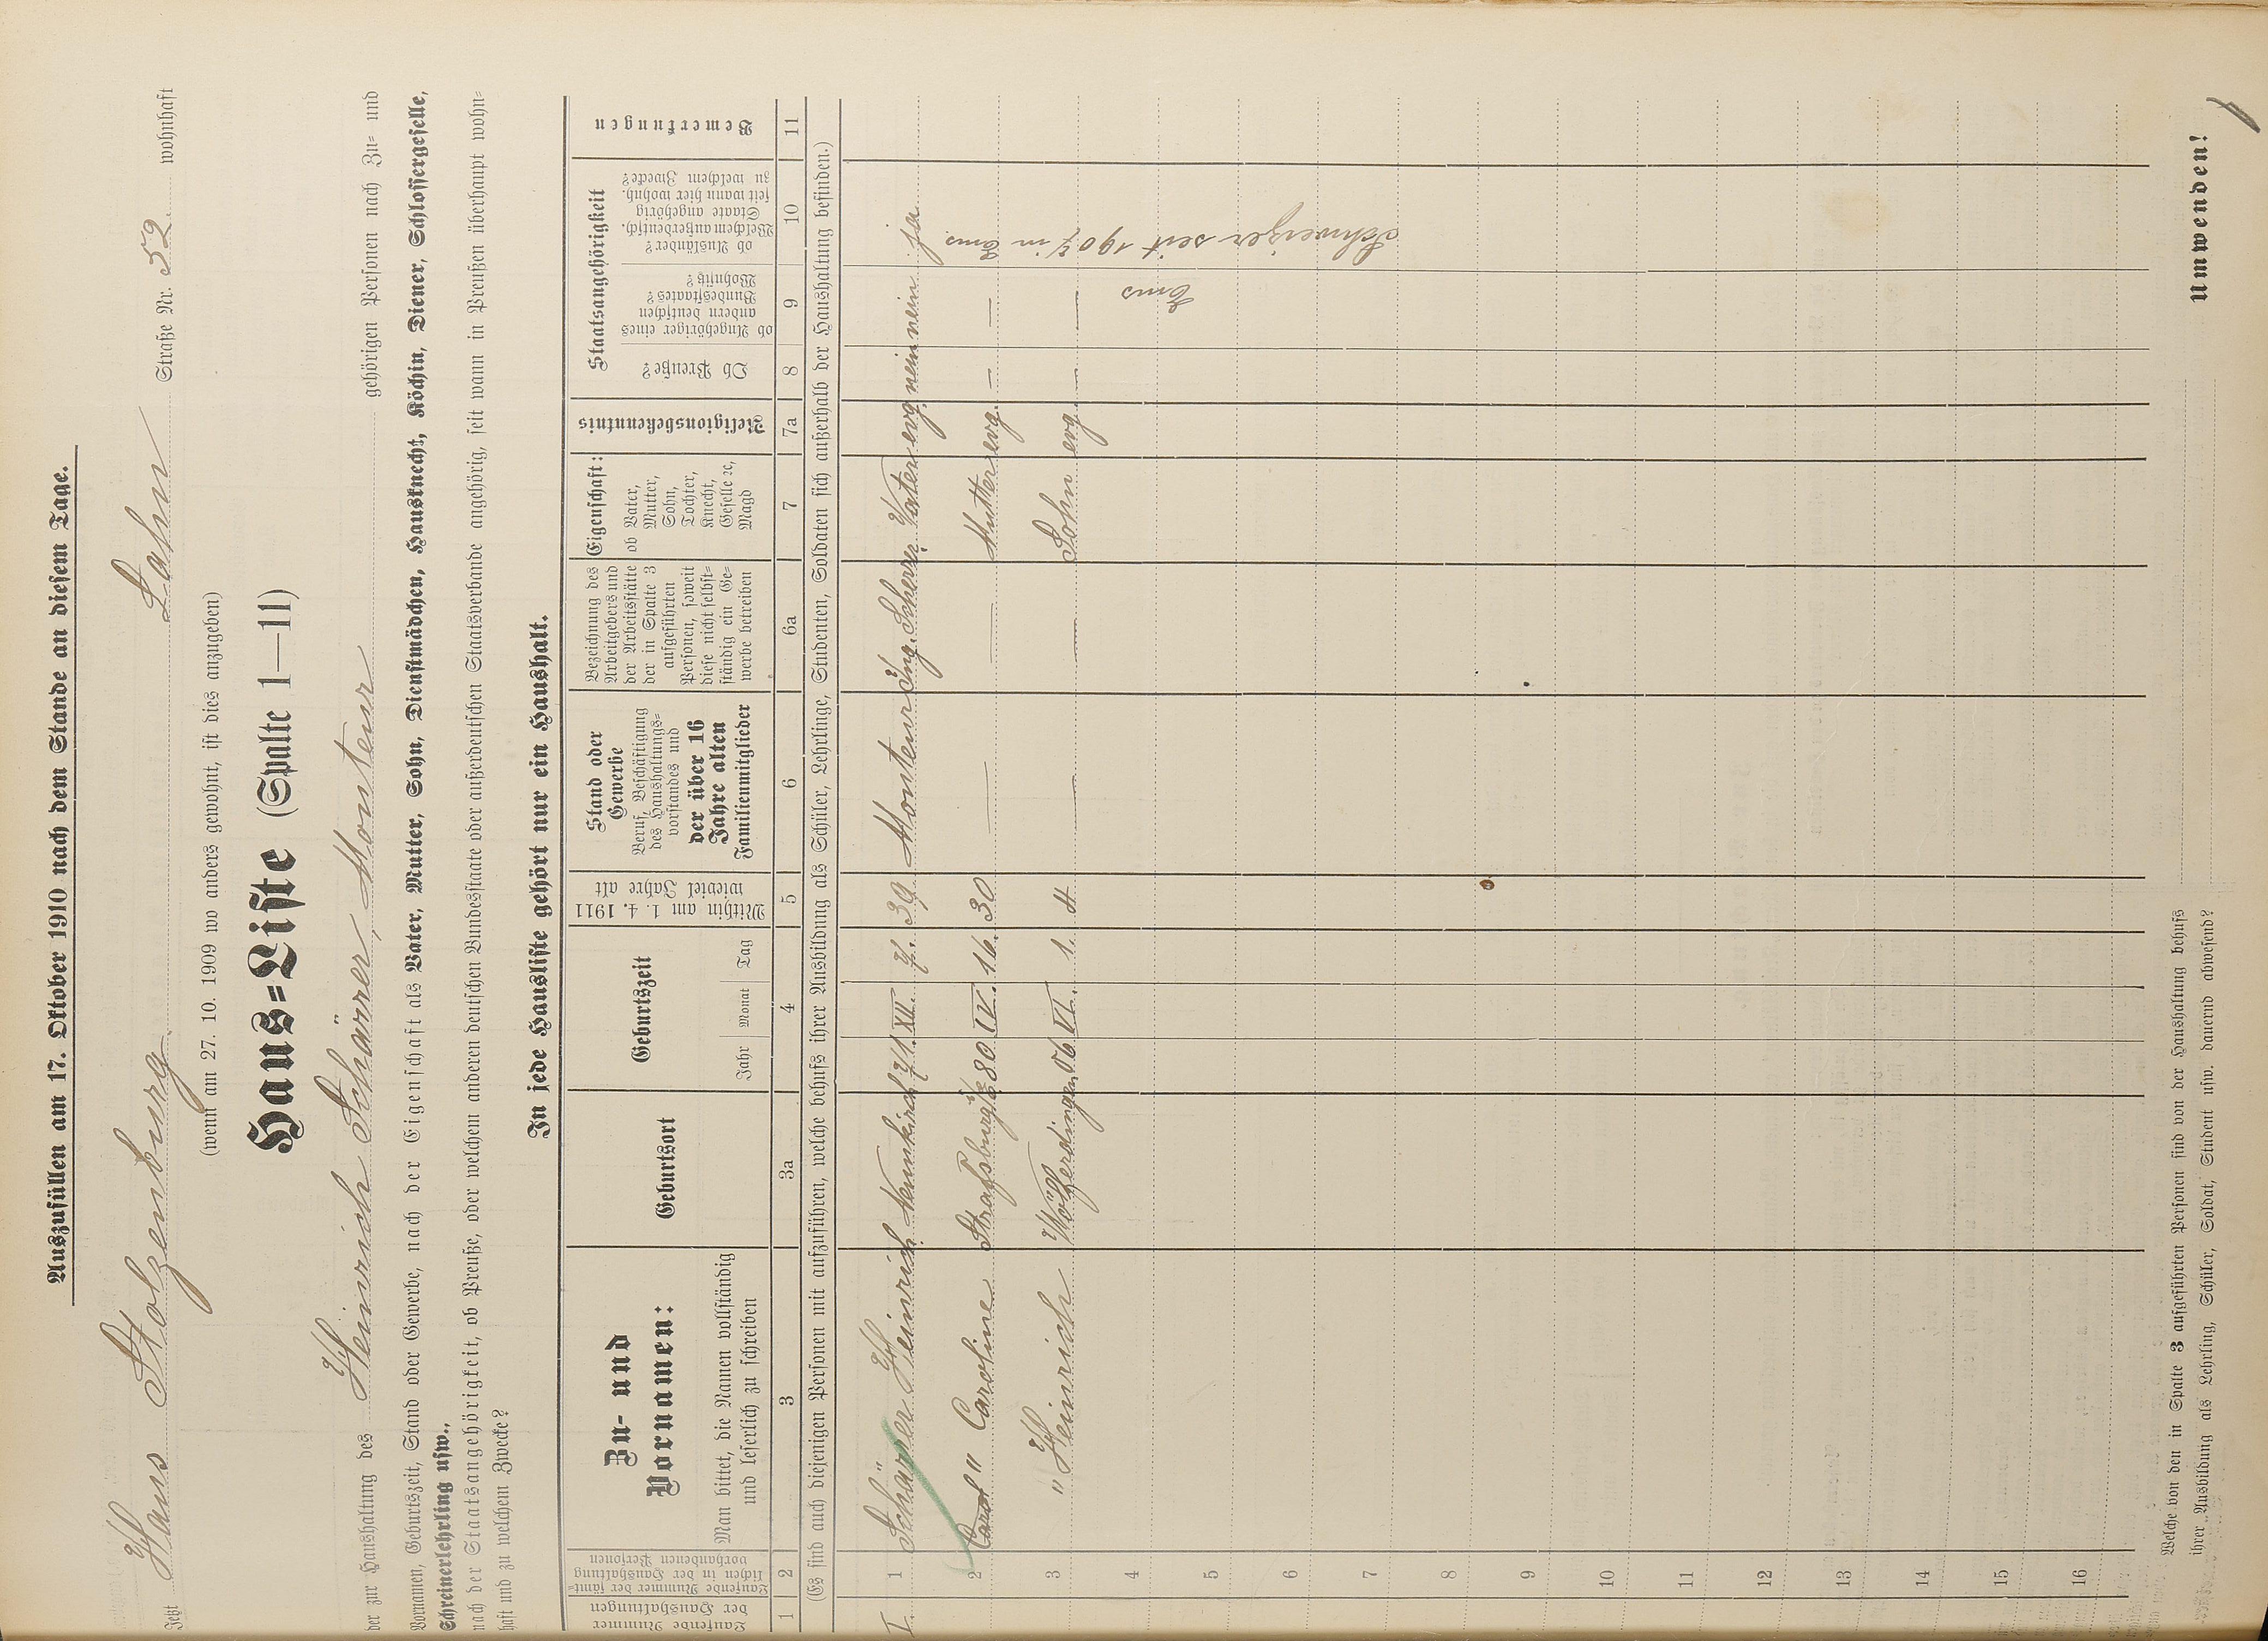 Auszufüllen am 17. Oktober 1910 nach dem Stande an diesem Tage.
Jetzt Haus Stolzenburg Lahn Straße Nr. 52. wohnhaft
(wenn am 27. 10. 1909 wo anders gewohnt, ist dies anzugeben)
Haus=Liste (Spalte 1—11)
der zur Haushaltung des Heinrich Schärrer, Monteur gehörigen Personen nach Zu= und
Vornamen, Geburtszeit, Stand oder Gewerbe, nach der Eigenschaft als Vater, Mutter, Sohn, Dienstmädchen, Hausknecht, Köchin, Diener, Schlossergeselle,
Schreinerlehrling usw.,
nach der Staatsangehörigkeit, ob Preuße, oder welchem anderen deutschen Bundesstaate oder außerdeutschen Staatsverbande angehörig, seit wann in Preußen überhaupt wohn=
haft und zu welchem Zwecke?
In jede Hausliste gehört nur ein Haushalt.
Laufende Nummer
der Haushaltungen
Laufende Nummer der sämt=
lichen in der Haushaltung
vorhandenen Personen
Zu- und
Vornamen:
Man bittet, die Namen vollständig
und leserlich zu schreiben
Geburtsort
Geburtszeit
Jahr Monat Tag
Mithin am 1. 4. 1911
wieviel Jahre alt
Stand oder
Gewerbe
Beruf, Beschäftigung
des Haushaltungs=
vorstandes und
der über 16
Jahre alten
Familienmitglieder
Bezeichnung des
Arbeitgebers und
der Arbeitsstätte
der in Spalte 3
aufgeführten
Personen, soweit
diese nicht selbst=
ständig ein Ge=
werbe betreiben
Eigenschaft:
ob Vater,
Mutter,
Sohn,
Tochter,
Knecht,
Geselle ꝛc,
Magd
Religionsbekenntnis
Staatsangehörigkeit
Ob Preuße?
ob Angehöriger eines
andern deutschen
Bundesstaates?
Wohnsitz?
ob Ausländer?
Welchem außerdeutsch.
Staate angehörig
seit wann hier wohnh.
zu welchem Zwecke?
Bemerkungen
1 2 3 3a 4 5 6 6a 7 7a 8 9 10 11
(Es sind auch diejenigen Personen mit aufzuführen, welche behufs ihrer Ausbildung als Schüler, Lehrlinge, Studenten, Soldaten sich außerhalb der Haushaltung befinden.)
I. 1 Schärrer Heinrich Neunkirch 71. XII. 7. 39 Monteur Ing. Scherrer Vater evg nein nein ja
2 Carol " Caroline Straßburg 80 IV. 16. 30 — — Mutter evg. — — Ems
3 " Heinrich 06 VI. 1. 4 — — Sohn evg — —
Schweizer seit 1907 in
Ems
4
5
6
7
8
9
10
11
12
13
14
15
16
Welche von den in Spalte 3 aufgeführten Personen sind von der Haushaltung behufs
ihrer Ausbildung als Lehrling, Schüler, Soldat, Student usw. dauernd abwesend?
Umwenden!